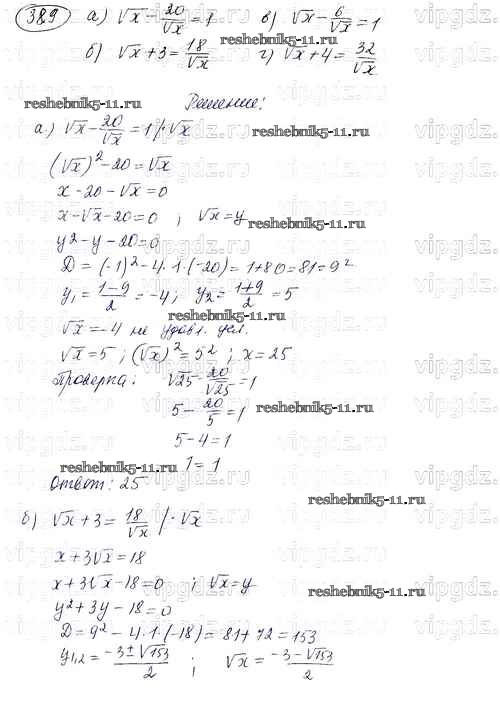 389 а) √x - 20/√x = 1 в) √x - 6/√x = 1
б) √x + 3 = 18/√x г) √x + 4 = 32/√x
reshebnik5-11.ru
Решение:
а) √x - 20/√x = 1 /·√x
reshebnik5-11.ru
(√x)² - 20 = √x
x - 20 - √x = 0
x - √x - 20 = 0 ; √x = y
reshebnik5-11.ru
y² - y - 20 = 0
D = (-1)² - 4·1·(-20) = 1 + 80 = 81 = 9²
y₁ = (1-9)/2 = -4; y₂ = (1+9)/2 = 5
√x = -4 не удовл. усл.
reshebnik5-11.ru
√x = 5 ; (√x)² = 5² ; x = 25
Проверка: √25 - 20/√25 = 1
5 - 20/5 = 1
reshebnik5-11.ru
5 - 4 = 1
1 = 1
reshebnik5-11.ru
Ответ: 25
б) √x + 3 = 18/√x /·√x
reshebnik5-11.ru
x + 3√x = 18
x + 3√x - 18 = 0 ; √x = y
reshebnik5-11.ru
y² + 3y - 18 = 0
D = 9² - 4·1·(-18) = 81 + 72 = 153
y₁,₂ = (-3 ± √153)/2 ; √x = (-3 - √153)/2
vipgdz.ru